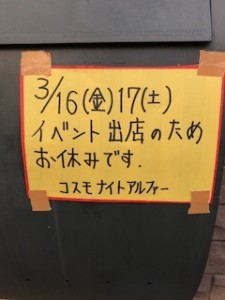 3/16(金)17(土)
イベント出店のため
お休みです.
コスモナイトアルファー